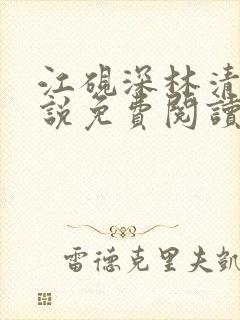 江硯深林清
說免費閱讀
雷德克里夫凱